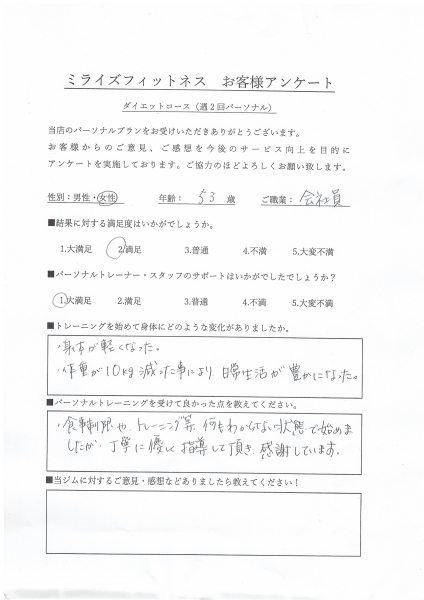 ミライズフィットネス　お客様アンケート
ダイエットコース（週２回パーソナル）
当店のパーソナルプランをお受けいただきありがとうございます。
お客様からのご意見、ご感想を今後のサービス向上を目的に
アンケートを実施しております。ご協力のほどよろしくお願い致します。
性別：男性・女性　年齢：53 歳　ご職業：会社員
■結果に対する満足度はいかがでしょうか。
1.大満足　2.満足　3.普通　4.不満　5.大変不満
■パーソナルトレーナー・スタッフのサポートはいかがでしたでしょうか？
1.大満足　2.満足　3.普通　4.不満　5.大変不満
■トレーニングを始めて身体にどのような変化がありましたか。
・身体が軽くなった。
・体重が10kg減った事により日常生活が豊かになった。
■パーソナルトレーニングを受けて良かった点を教えてください。
・食事制限や、トレーニング等 何もわからない状態で始めま
したが、丁寧に優しく指導して頂き、感謝しています。
■当ジムに対するご意見・感想などありましたら教えてください！